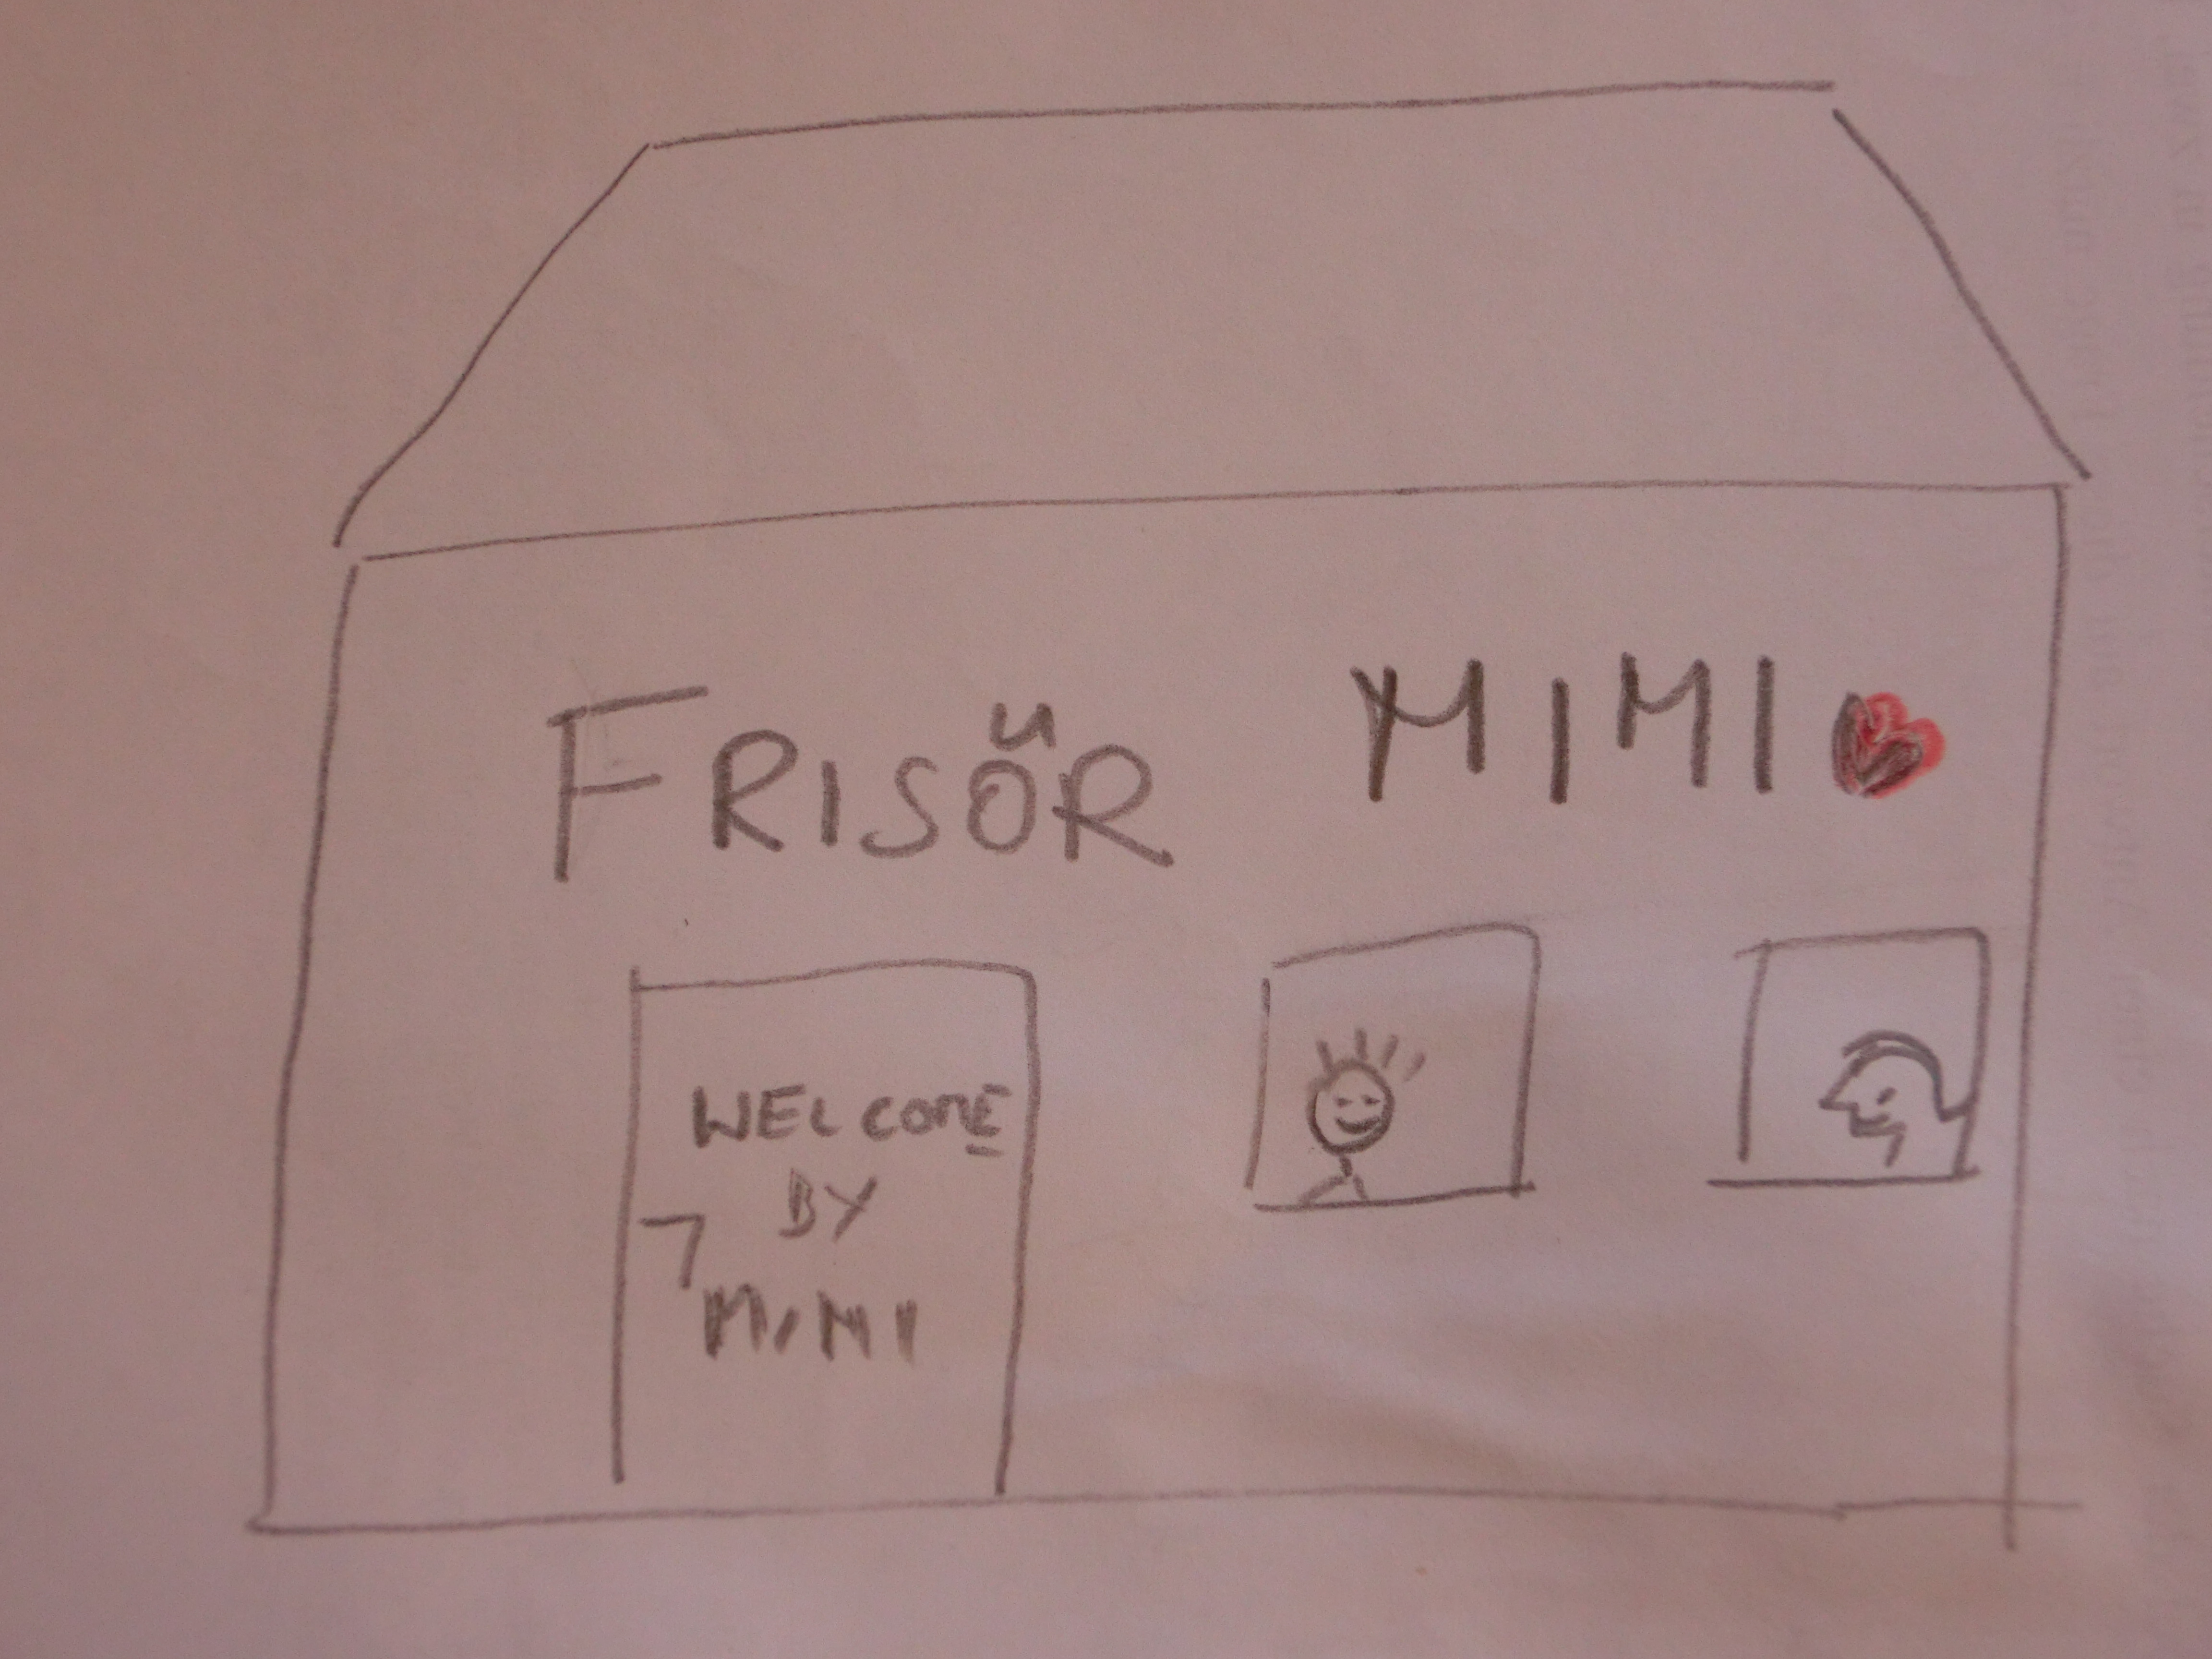 FRISÖR MIMI
WELCOME
BY
MIMI